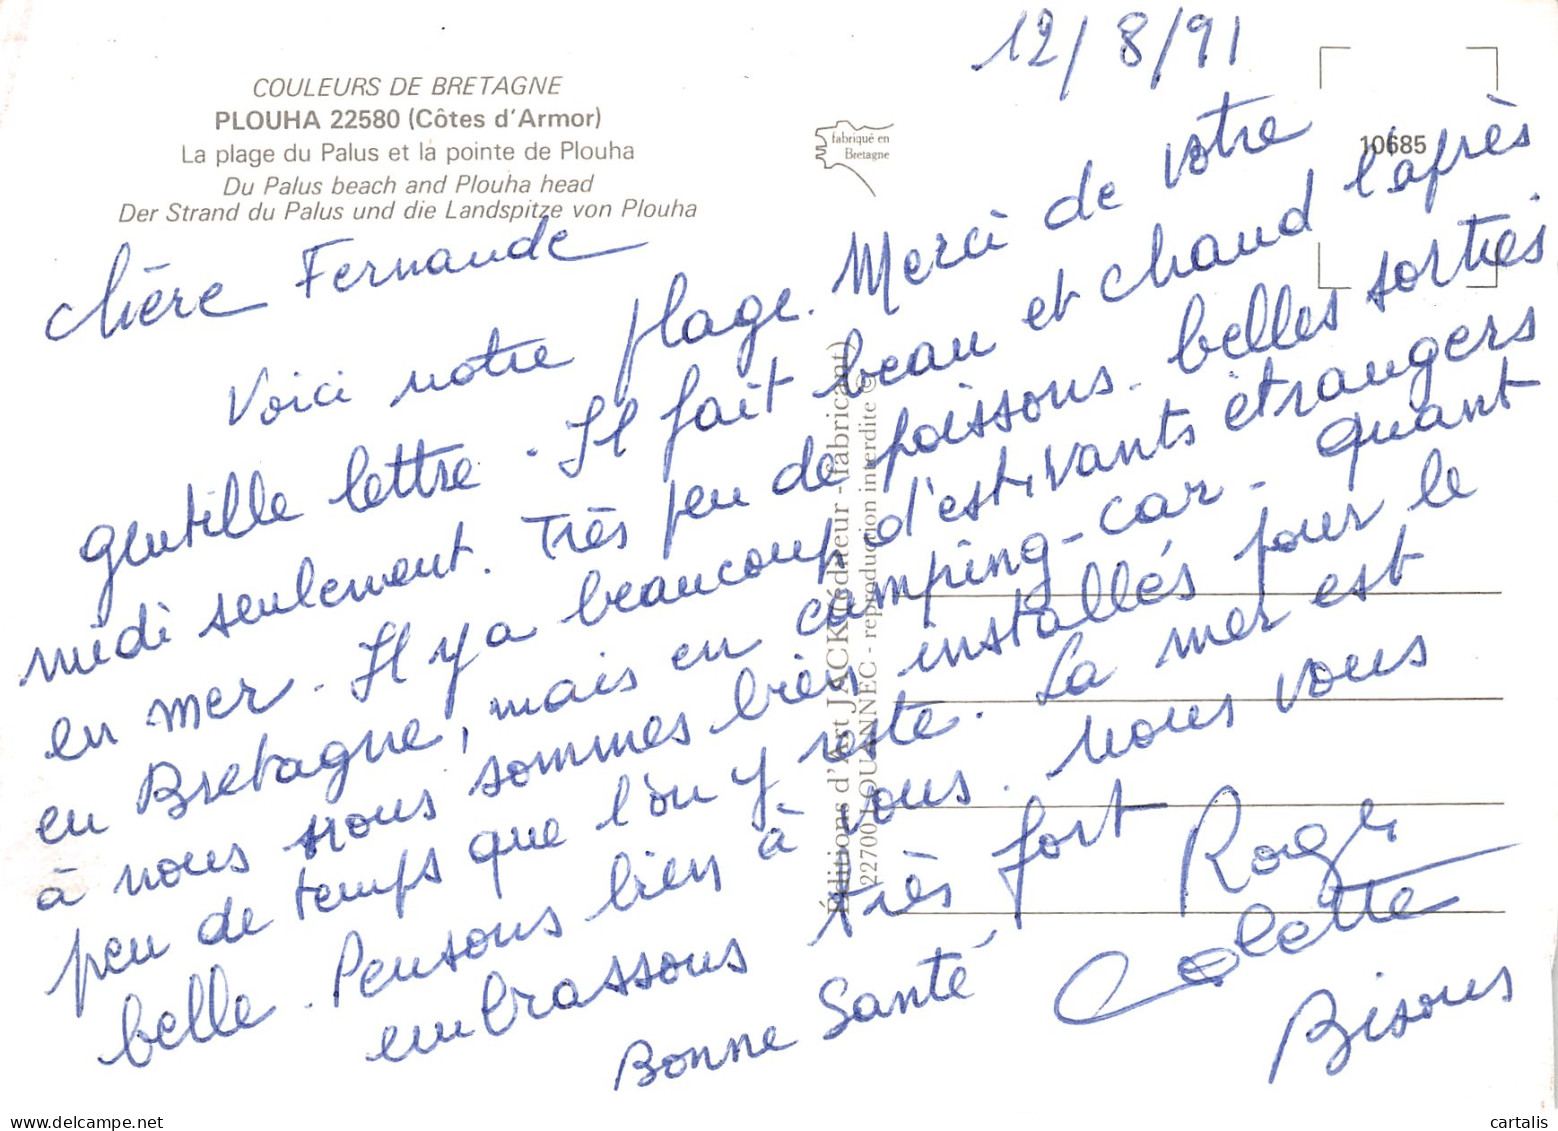 12/8/91
COULEURS DE BRETAGNE
PLOUHA 22580 (Côtes d'Armor)
La plage du Palus et la pointe de Plouha
Du Palus beach and Plouha head
Der Strand du Palus und die Landspitze von Plouha
fabriqué en
Bretagne
10685
Chère Fernande
Voici notre plage. Merci de votre
gentille lettre - Il fait beau et chaud l'après
midi seulement. Très peu de poissons - belles sorties
en mer - Il y a beaucoup d'estivants étrangers
en Bretagne, mais en camping-car - quant
à nous nous sommes bien installés pour le
peu de temps que l'on y reste. La mer est
belle - Pensons bien à vous. Nous vous
embrassons très fort
Bonne Santé
Colette
Bisous
Éditions d'Art JACK (éditeur - fabricant)
22700 LOUANNEC - reproduction interdite ©
cartalis